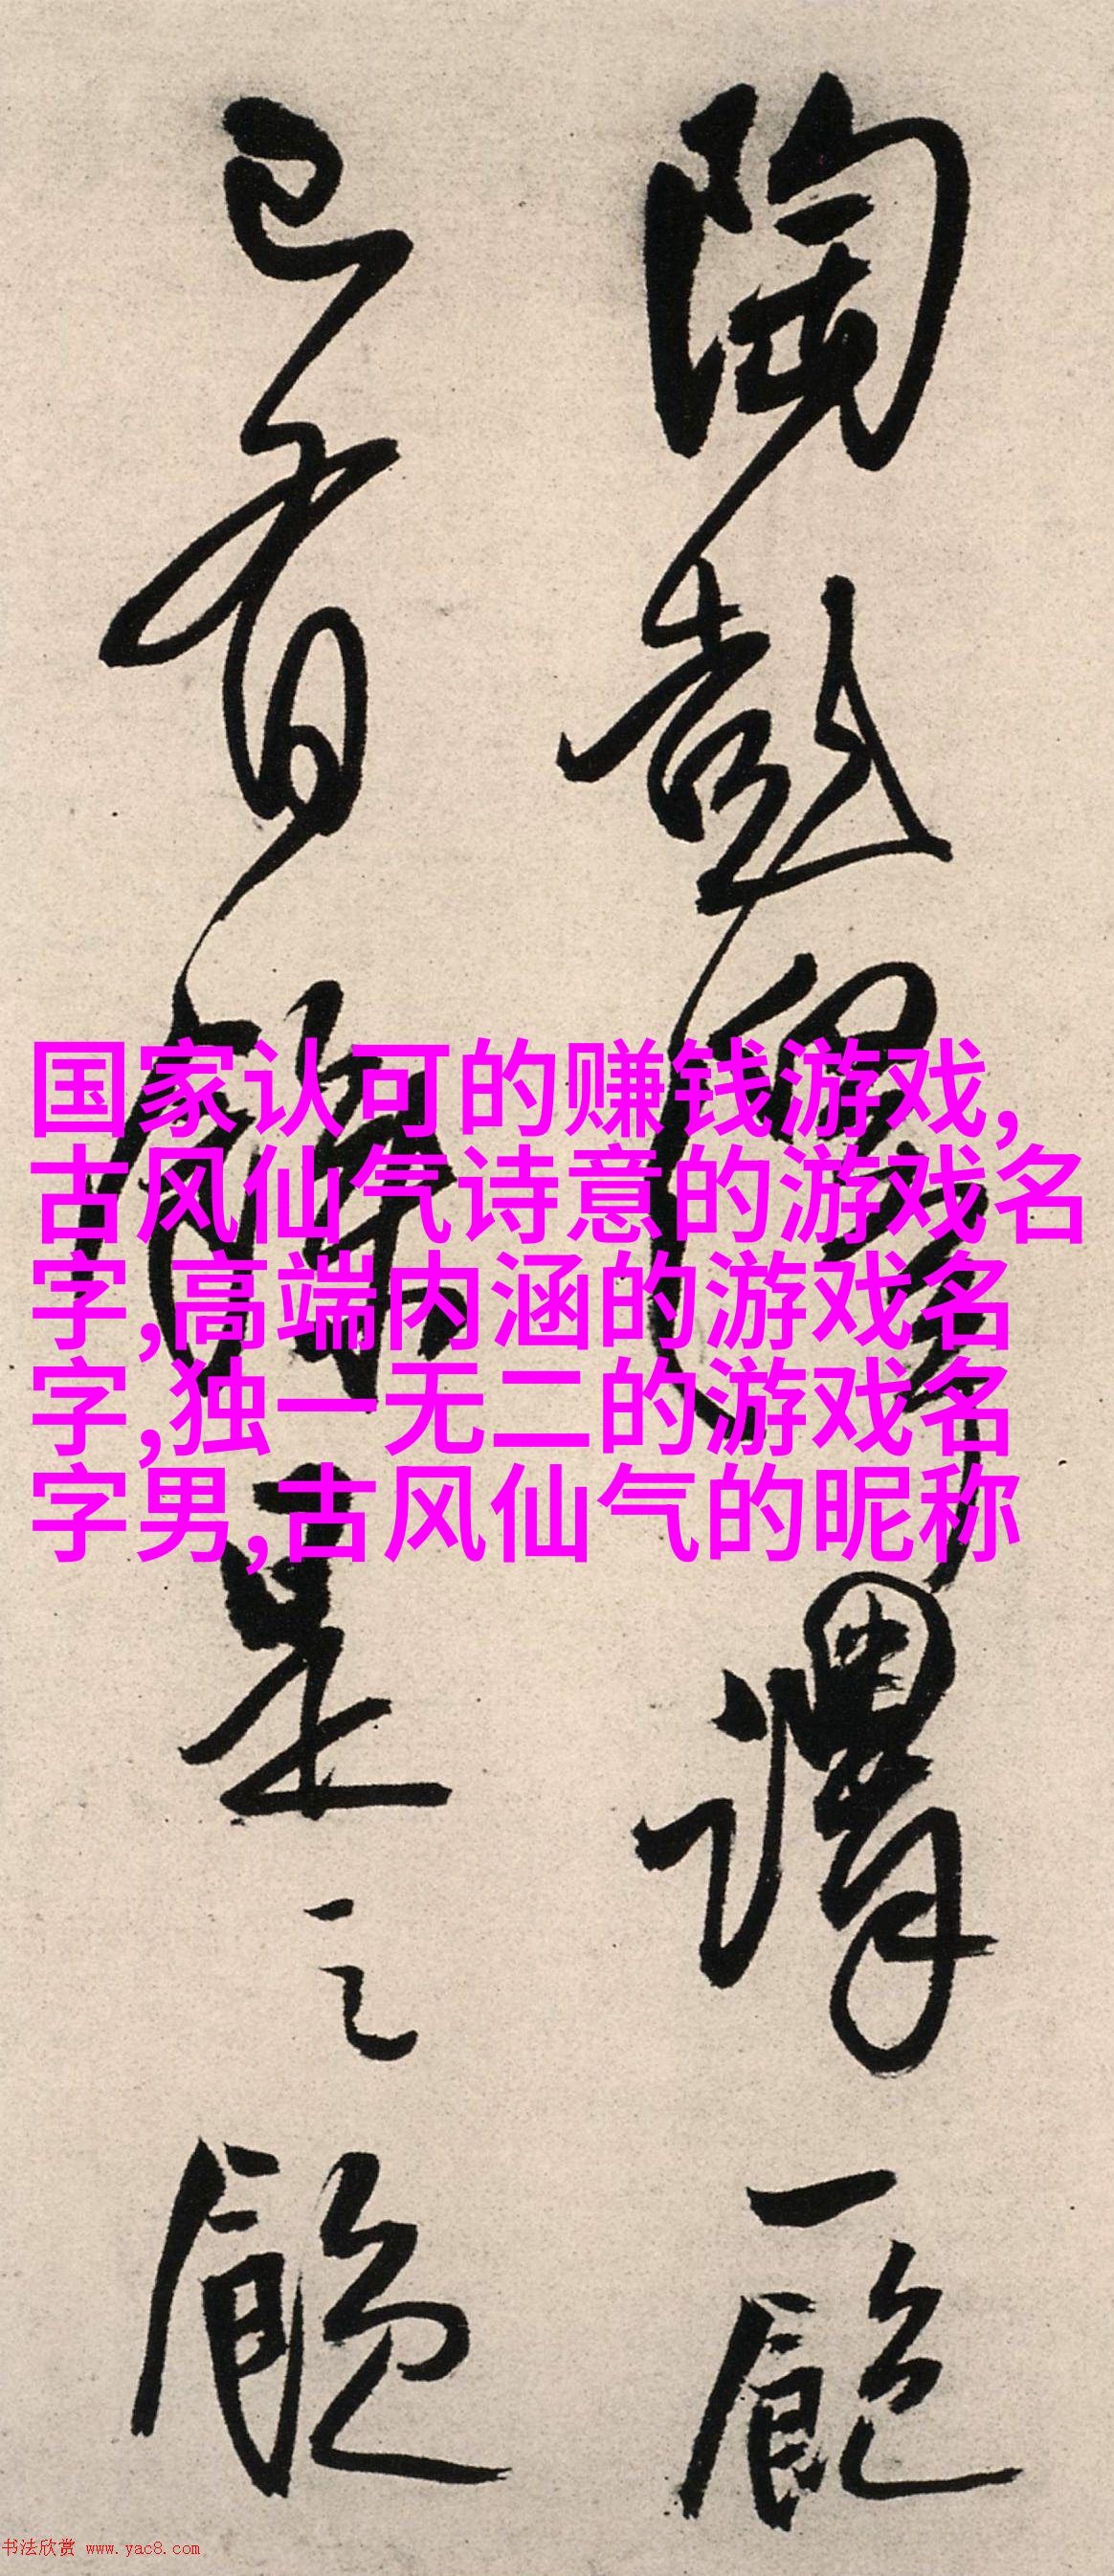 陶彭澤謂一飽
已有餘是之
国家认可的赚钱游戏,
古风仙气诗意的游戏名
字,高端内涵的游戏名
字,独一无二的游戏名
字男,古风仙气的昵称
书法欣赏 www.yac8.com